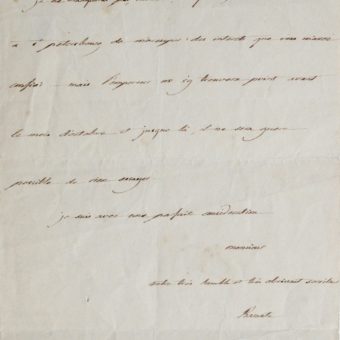 je ne manquerai pas
a St petersbourg de m'occuper des interets que vous m'avez
confiés mais l'empereur ne s'y trouvera point avant
le mois d'octobre et jusque là, il ne sera guere
possible de rien
je suis avec une parfaite consideration
monsieur
votre très humble et très obéissant servite